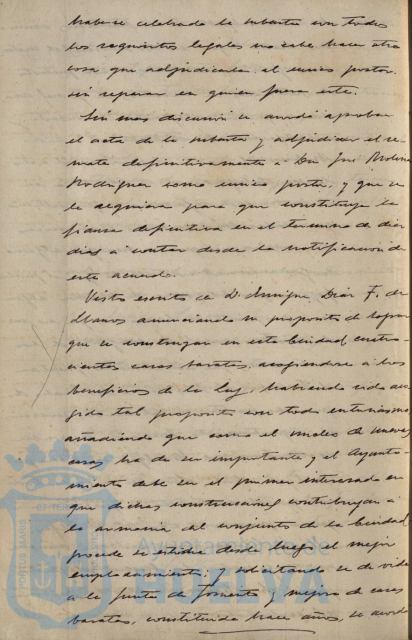 haberse celebrado la subasta con todos
los requisitos legales no cabe hacer otra
cosa que adjudicarla al unico postor
sin reparar en quien fuera este.
Sin mas discusion se acordó aprobar
el acta de la subasta y adjudicar el re-
mate definitivamente a Don José Molina
Rodriguez como unico postor, y que se
le requiera para que constituya la
fianza definitiva en el termino de diez
dias a contar desde la notificacion de
este acuerdo.
Visto escrito de D. Enrique Diaz F. de
Llanos anunciando su proposito de lograr
que se construyan en esta Ciudad cuatro-
cientas casas baratas, acogiendose a los
beneficios de la ley, habiendo sido aco-
gido tal proposito con todo entusiasmo
añadiendo que como el nucleo de nuevas
casas ha de ser importante y el Ayunta-
miento debe ser el primer interesado en
que dichas construcciones contribuyan a
la armonia del conjunto de la Ciudad,
procede se estudie desde luego el mejor
emplazamiento; y solicitando se dé vida
a la Junta de fomento y mejora de casas
baratas, constituida hace años, se acordó
PORTUS MARIS
Ayuntamiento de
HUELVA